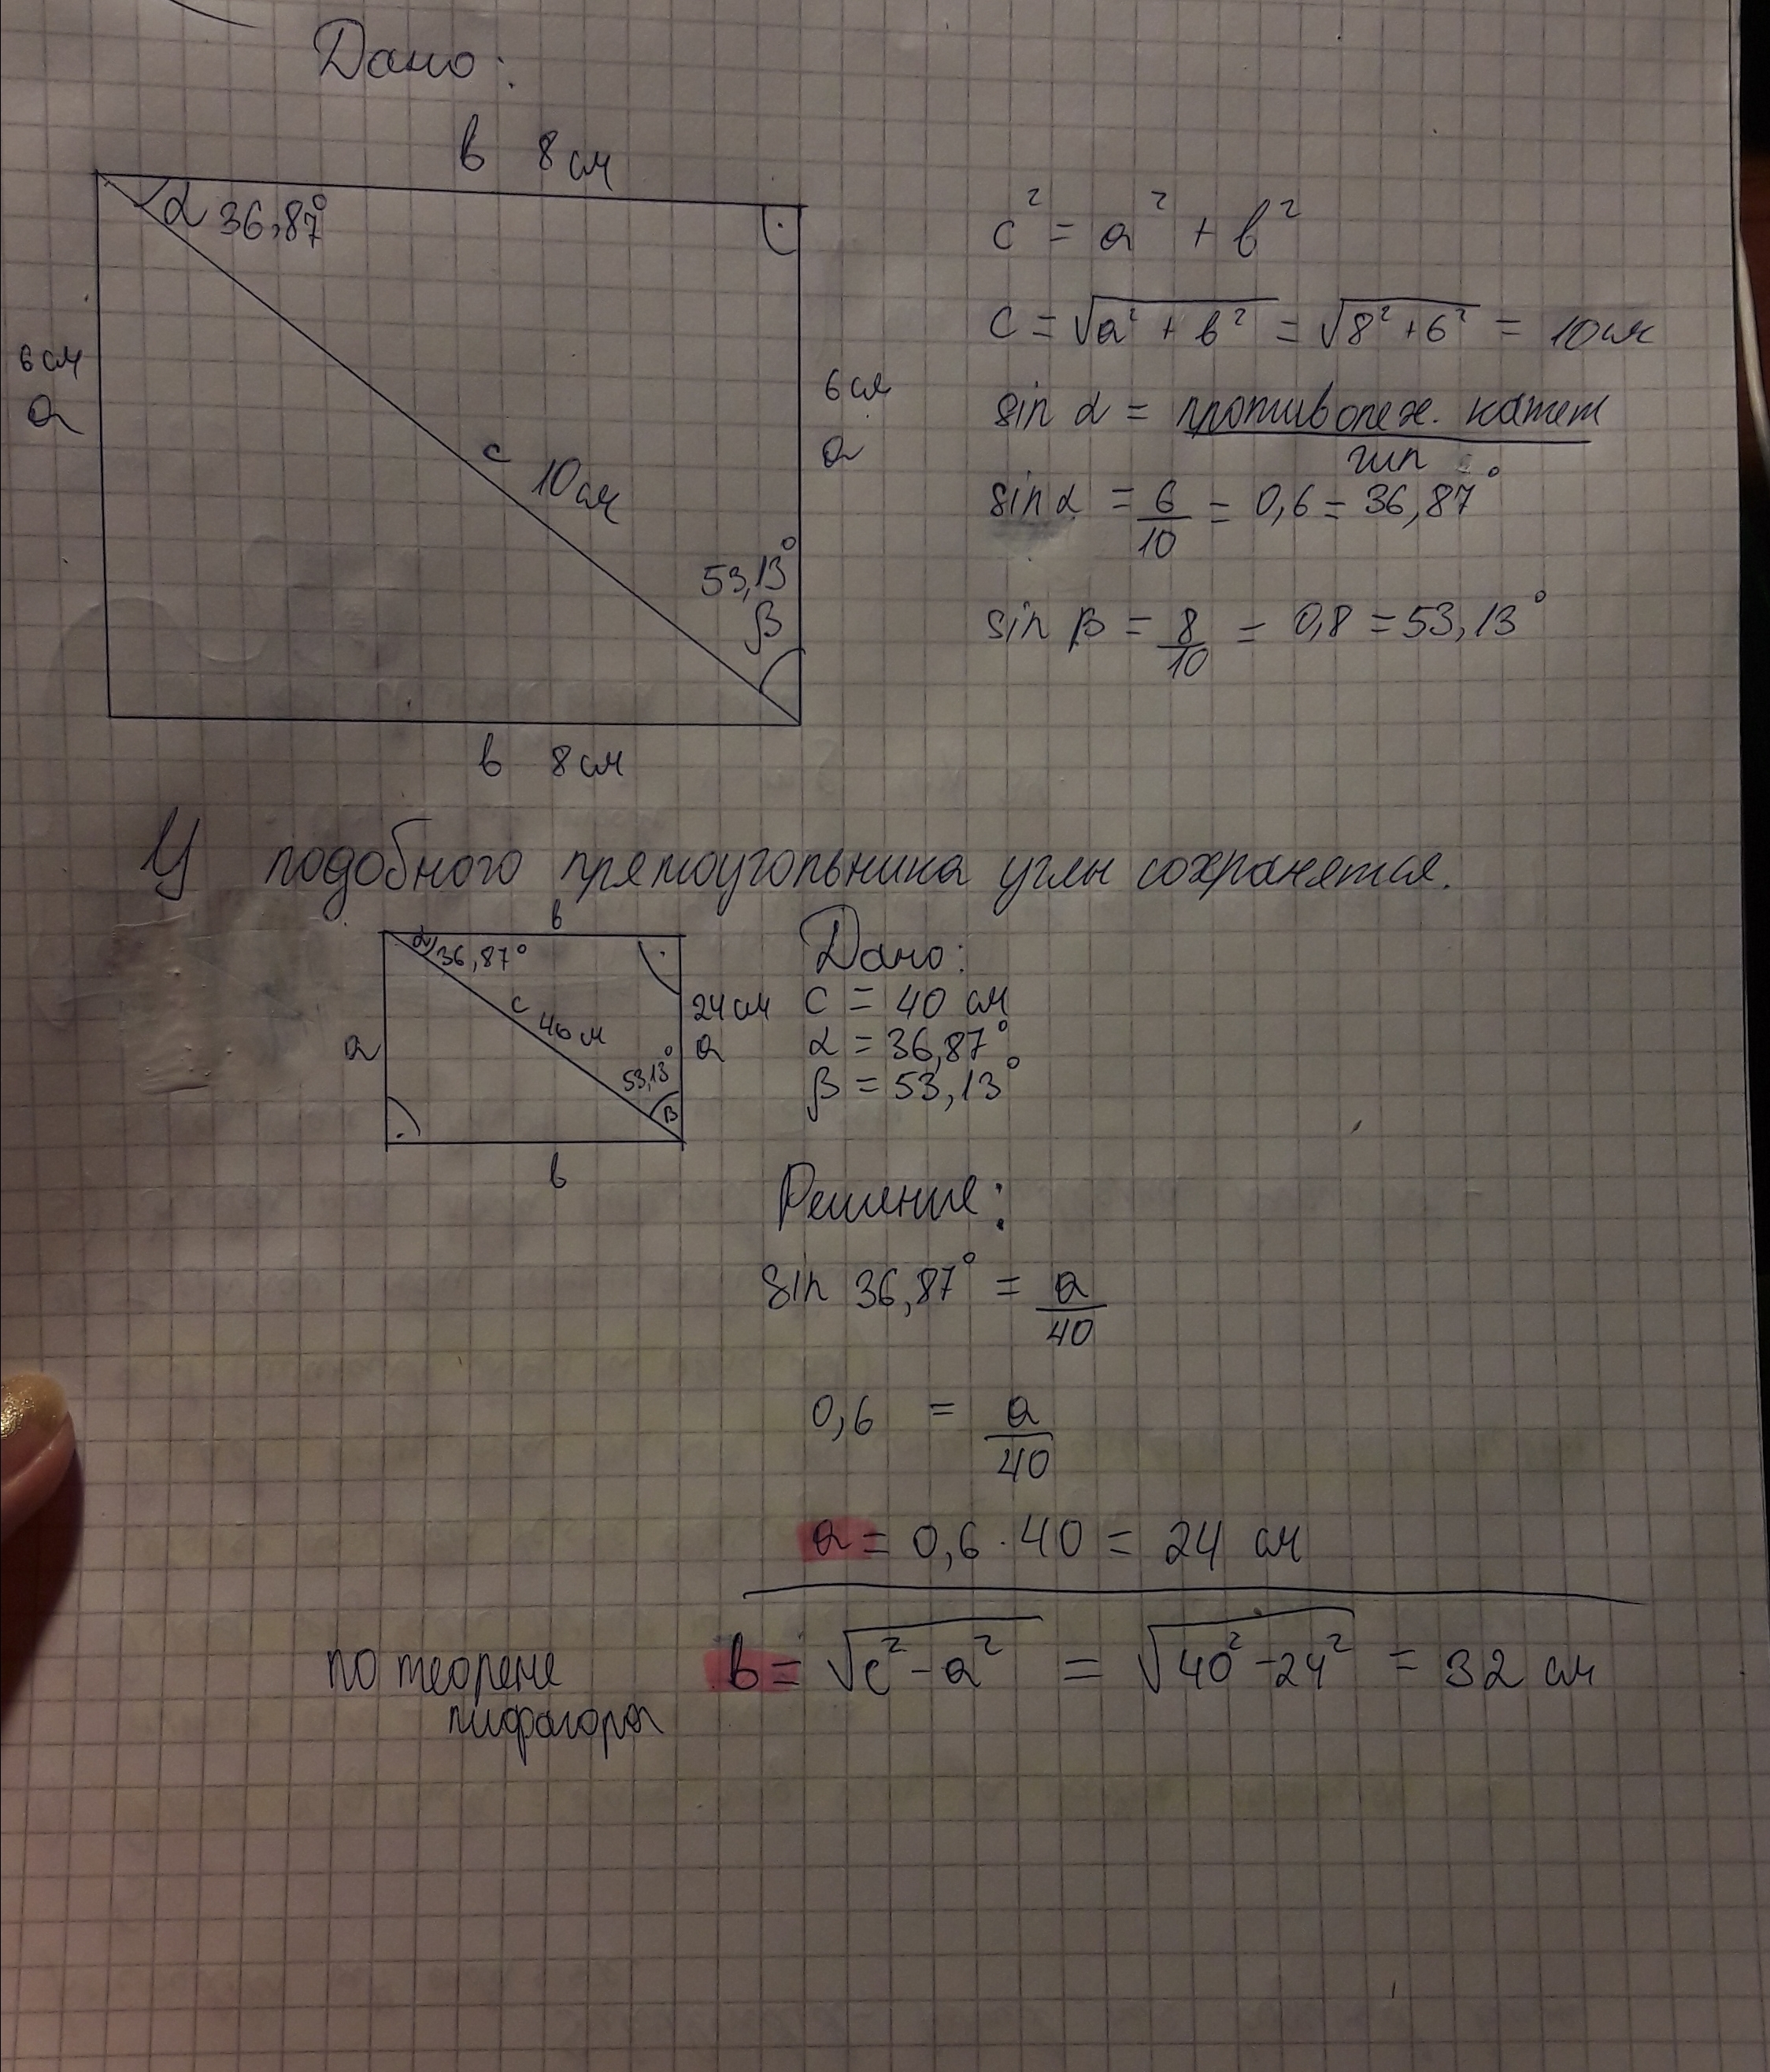 Дано:
в 8 см
α 36,87°
6 см
а
с 10 см
6 см
а
53,13°
β
в 8 см
c² = а² + в²
c = √а² + в² = √8² + 6² = 10 см
sin α = противолеж. катет
гип
sin α = 6/10 = 0,6 = 36,87°
sin β = 8/10 = 0,8 = 53,13°
У подобного прямоугольника углы сохраняется.
в
α 36,87°
с 40 см
а
24 см
а
53,13°
β
в
Дано:
c = 40 см
α = 36,87°
β = 53,13°
Решение:
sin 36,87° = а/40
0,6 = а/40
а = 0,6 · 40 = 24 см
по теореме
пифагора
в = √c² - а² = √40² - 24² = 32 см